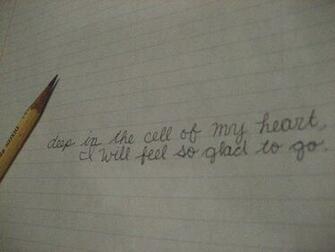 deep in the cell of my heart,
I will feel so glad to go.